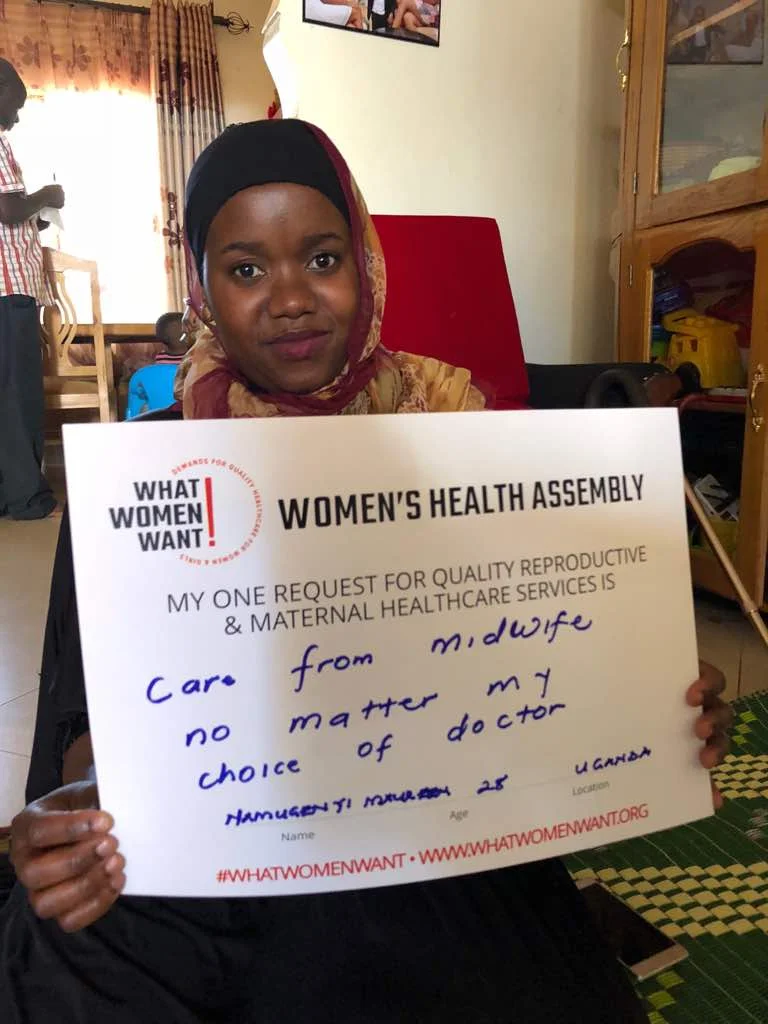 WHAT
WOMEN
WANT!
DEMANDS FOR QUALITY HEALTHCARE FOR WOMEN & GIRLS
WOMEN'S HEALTH ASSEMBLY
MY ONE REQUEST FOR QUALITY REPRODUCTIVE
& MATERNAL HEALTHCARE SERVICES IS
Care from midwife
no matter my
choice of doctor
28 UGANDA
Name Age Location
#WHATWOMENWANT • WWW.WHATWOMENWANT.ORG